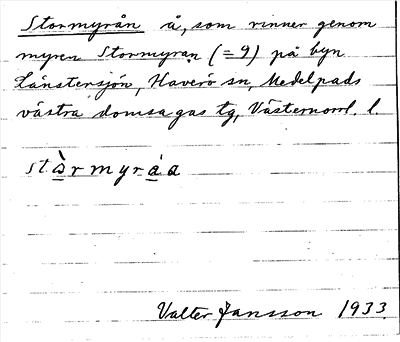 Stormyrån å, som rinner genom
myren Stormyran (= 9) på byn
Länstersjön, Haverö sn, Medelpads
västra domsagas tg, Västernorrl. l.
stàrmyráa
Valter Jansson 1933.